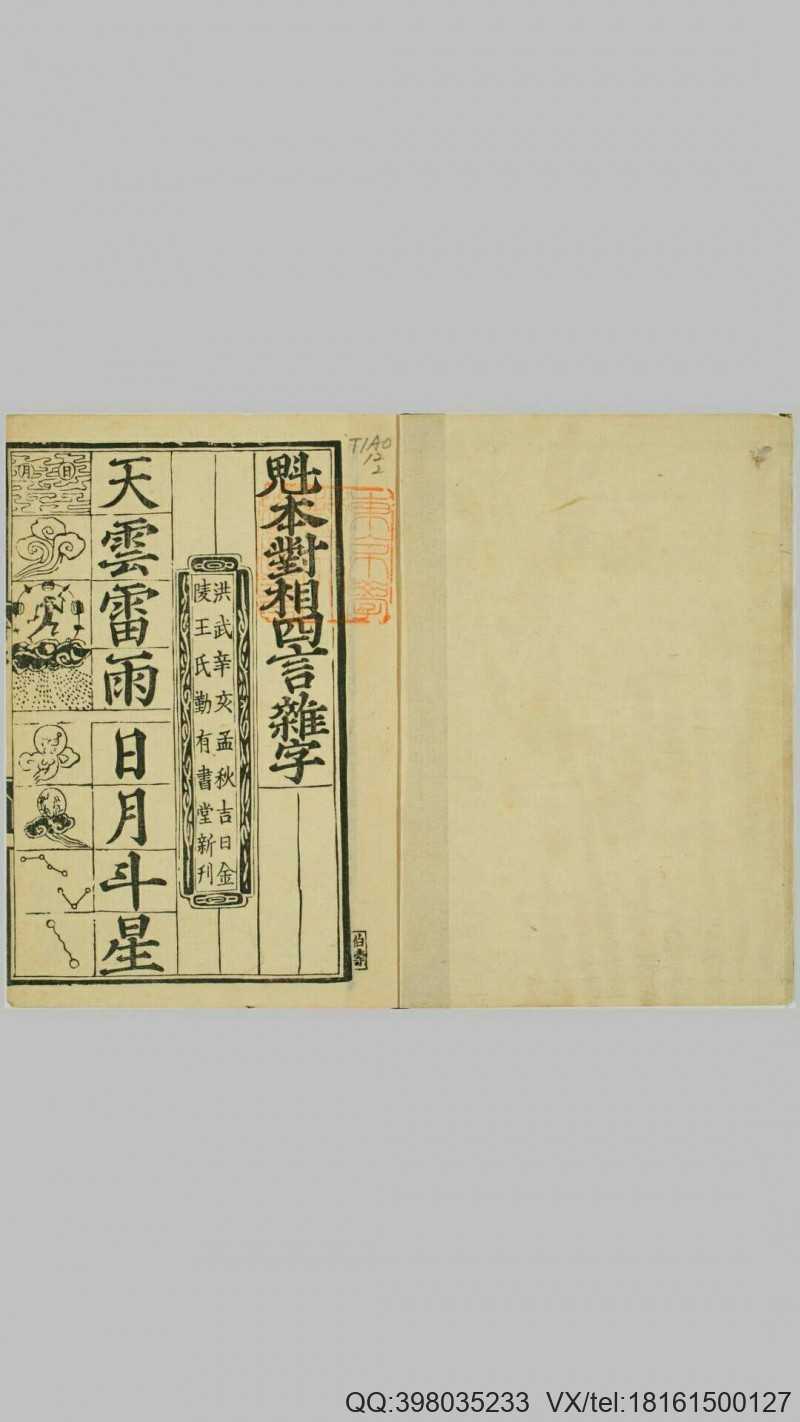 TIAO
12
2
魁本對相四言雜字
洪武辛亥孟秋吉日金
陵王氏勤有書堂新刊
天雲雷雨
日月斗星
日
月
伯壽
QQ:398035233 VX/tel:18161500127